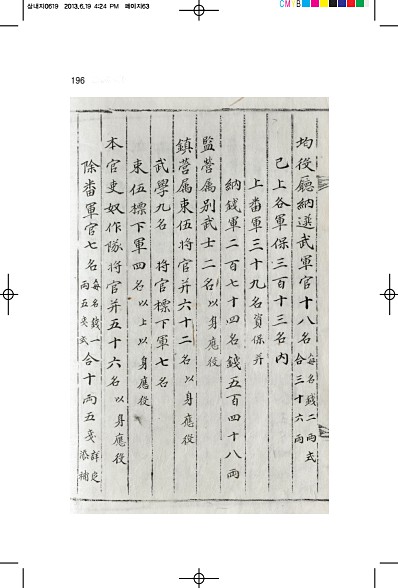 삼내지0619 2013.6.19 4:24 PM 페이지63
CMYB
196
均役廳納選武軍官十八名 每名錢二兩式合三十六兩
已上各軍保三百十三名內
上番軍三十九名資保并
納錢軍二百七十四名錢五百四十八兩
監營屬別武士二名 以身應役
鎭營屬束伍將官并六十二名 以身應役
武學九名 將官標下軍七名
束伍標下軍四名 以上以身應役
本官吏奴作隊將官并五十六名 以身應役
除番軍官七名 每名錢一兩五戔式 合十兩五戔 添補